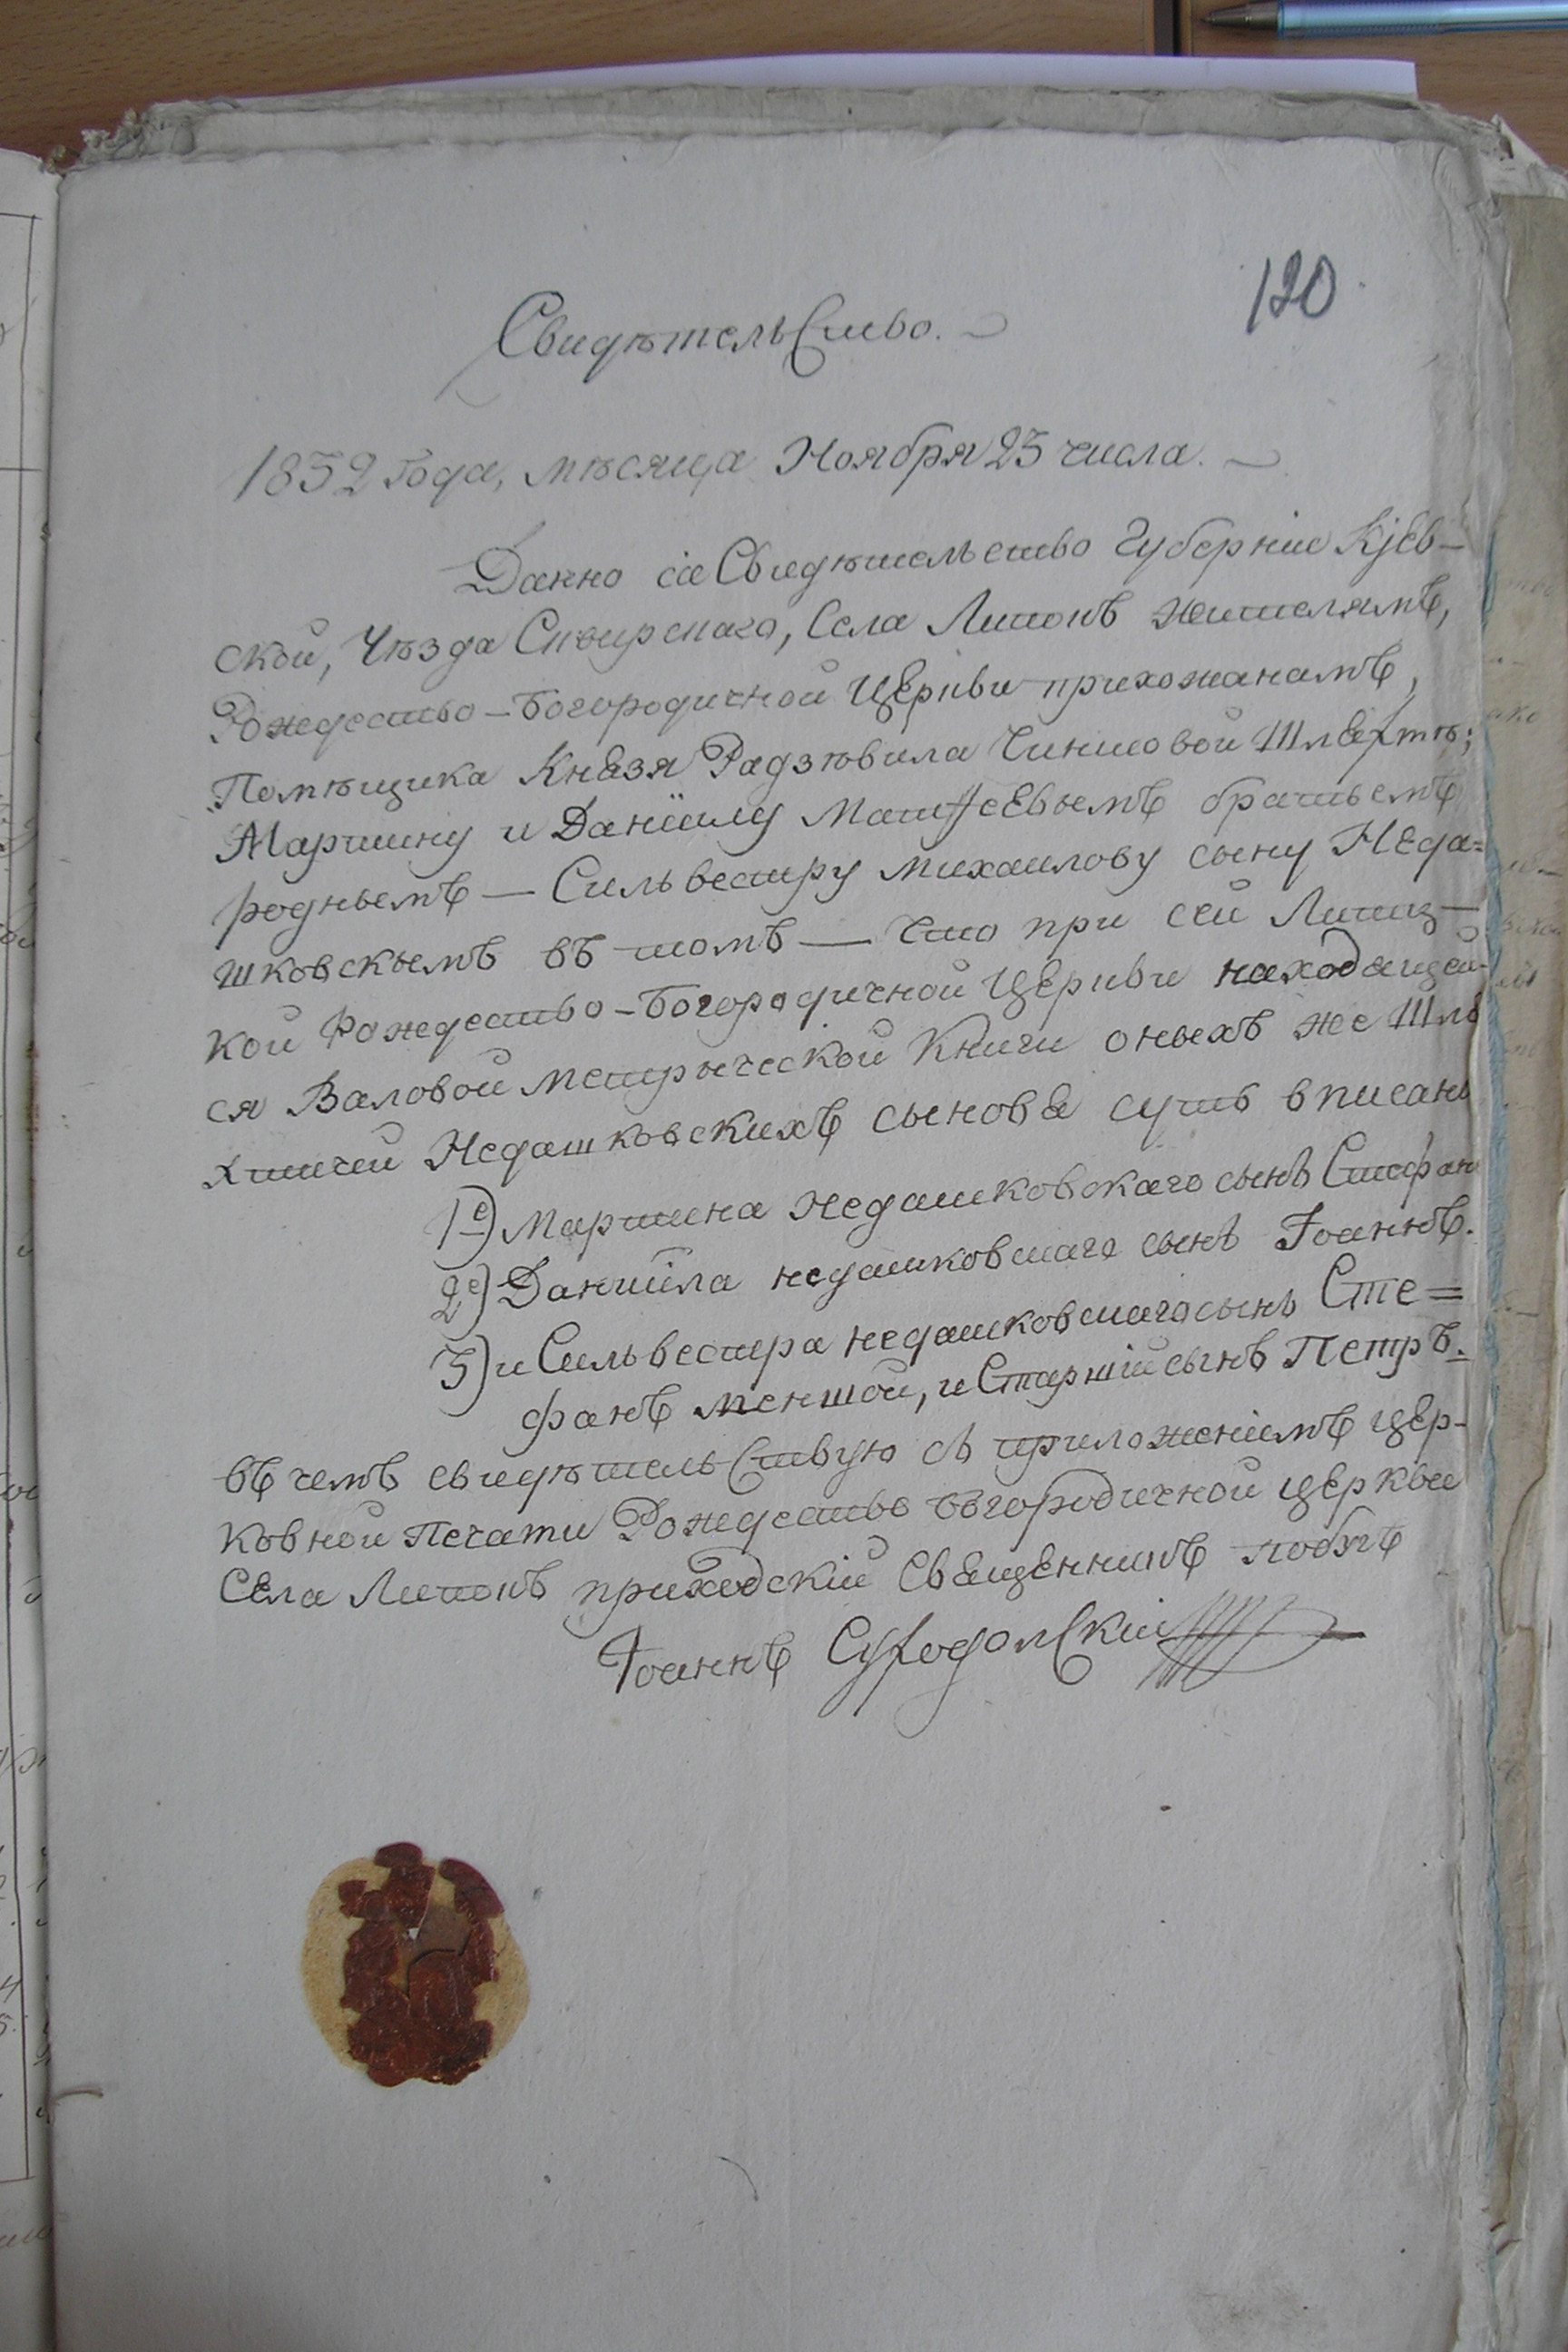 120.
Свидѣтельство.
1832 Года, мѣсяца Ноября 23 числа.
Данно сіе Свидѣтельство Губерніи Кіев-
ской, Уѣзда Сквирскаго, Села Липокъ жителямъ,
Рождество-Богородичной Церкви прихожанамъ,
Помѣщика Князя Радзѣвила Чиншовой Шляхтѣ;
Мартину и Даніилу Матфеевымъ братьемъ
роднымъ — Сильвестру Михаилову сыну Неда=
шковскымъ въ томъ — Что при сей Липец-
кой Рождество-Богородичной Церкви находящей-
ся Валовой Метрыческой Книги оныхъ же Шля
хтичей Недашковскихъ сыновя суть вписаны
1е) Мартина Недашковскаго сынъ Стефан
2е) Даниила недашковскаго сынъ Іоаннъ.
3) и Сильвестра недашковскаго сынъ Сте=
фанъ меншой, и Старшій сынъ Петръ.
въ чемъ свидѣтельствую съ приложеніемъ цер-
ковной Печати Рождество Богородичной церкви
Села Липокъ приходскій Священникъ
Іоаннъ Суходолскій